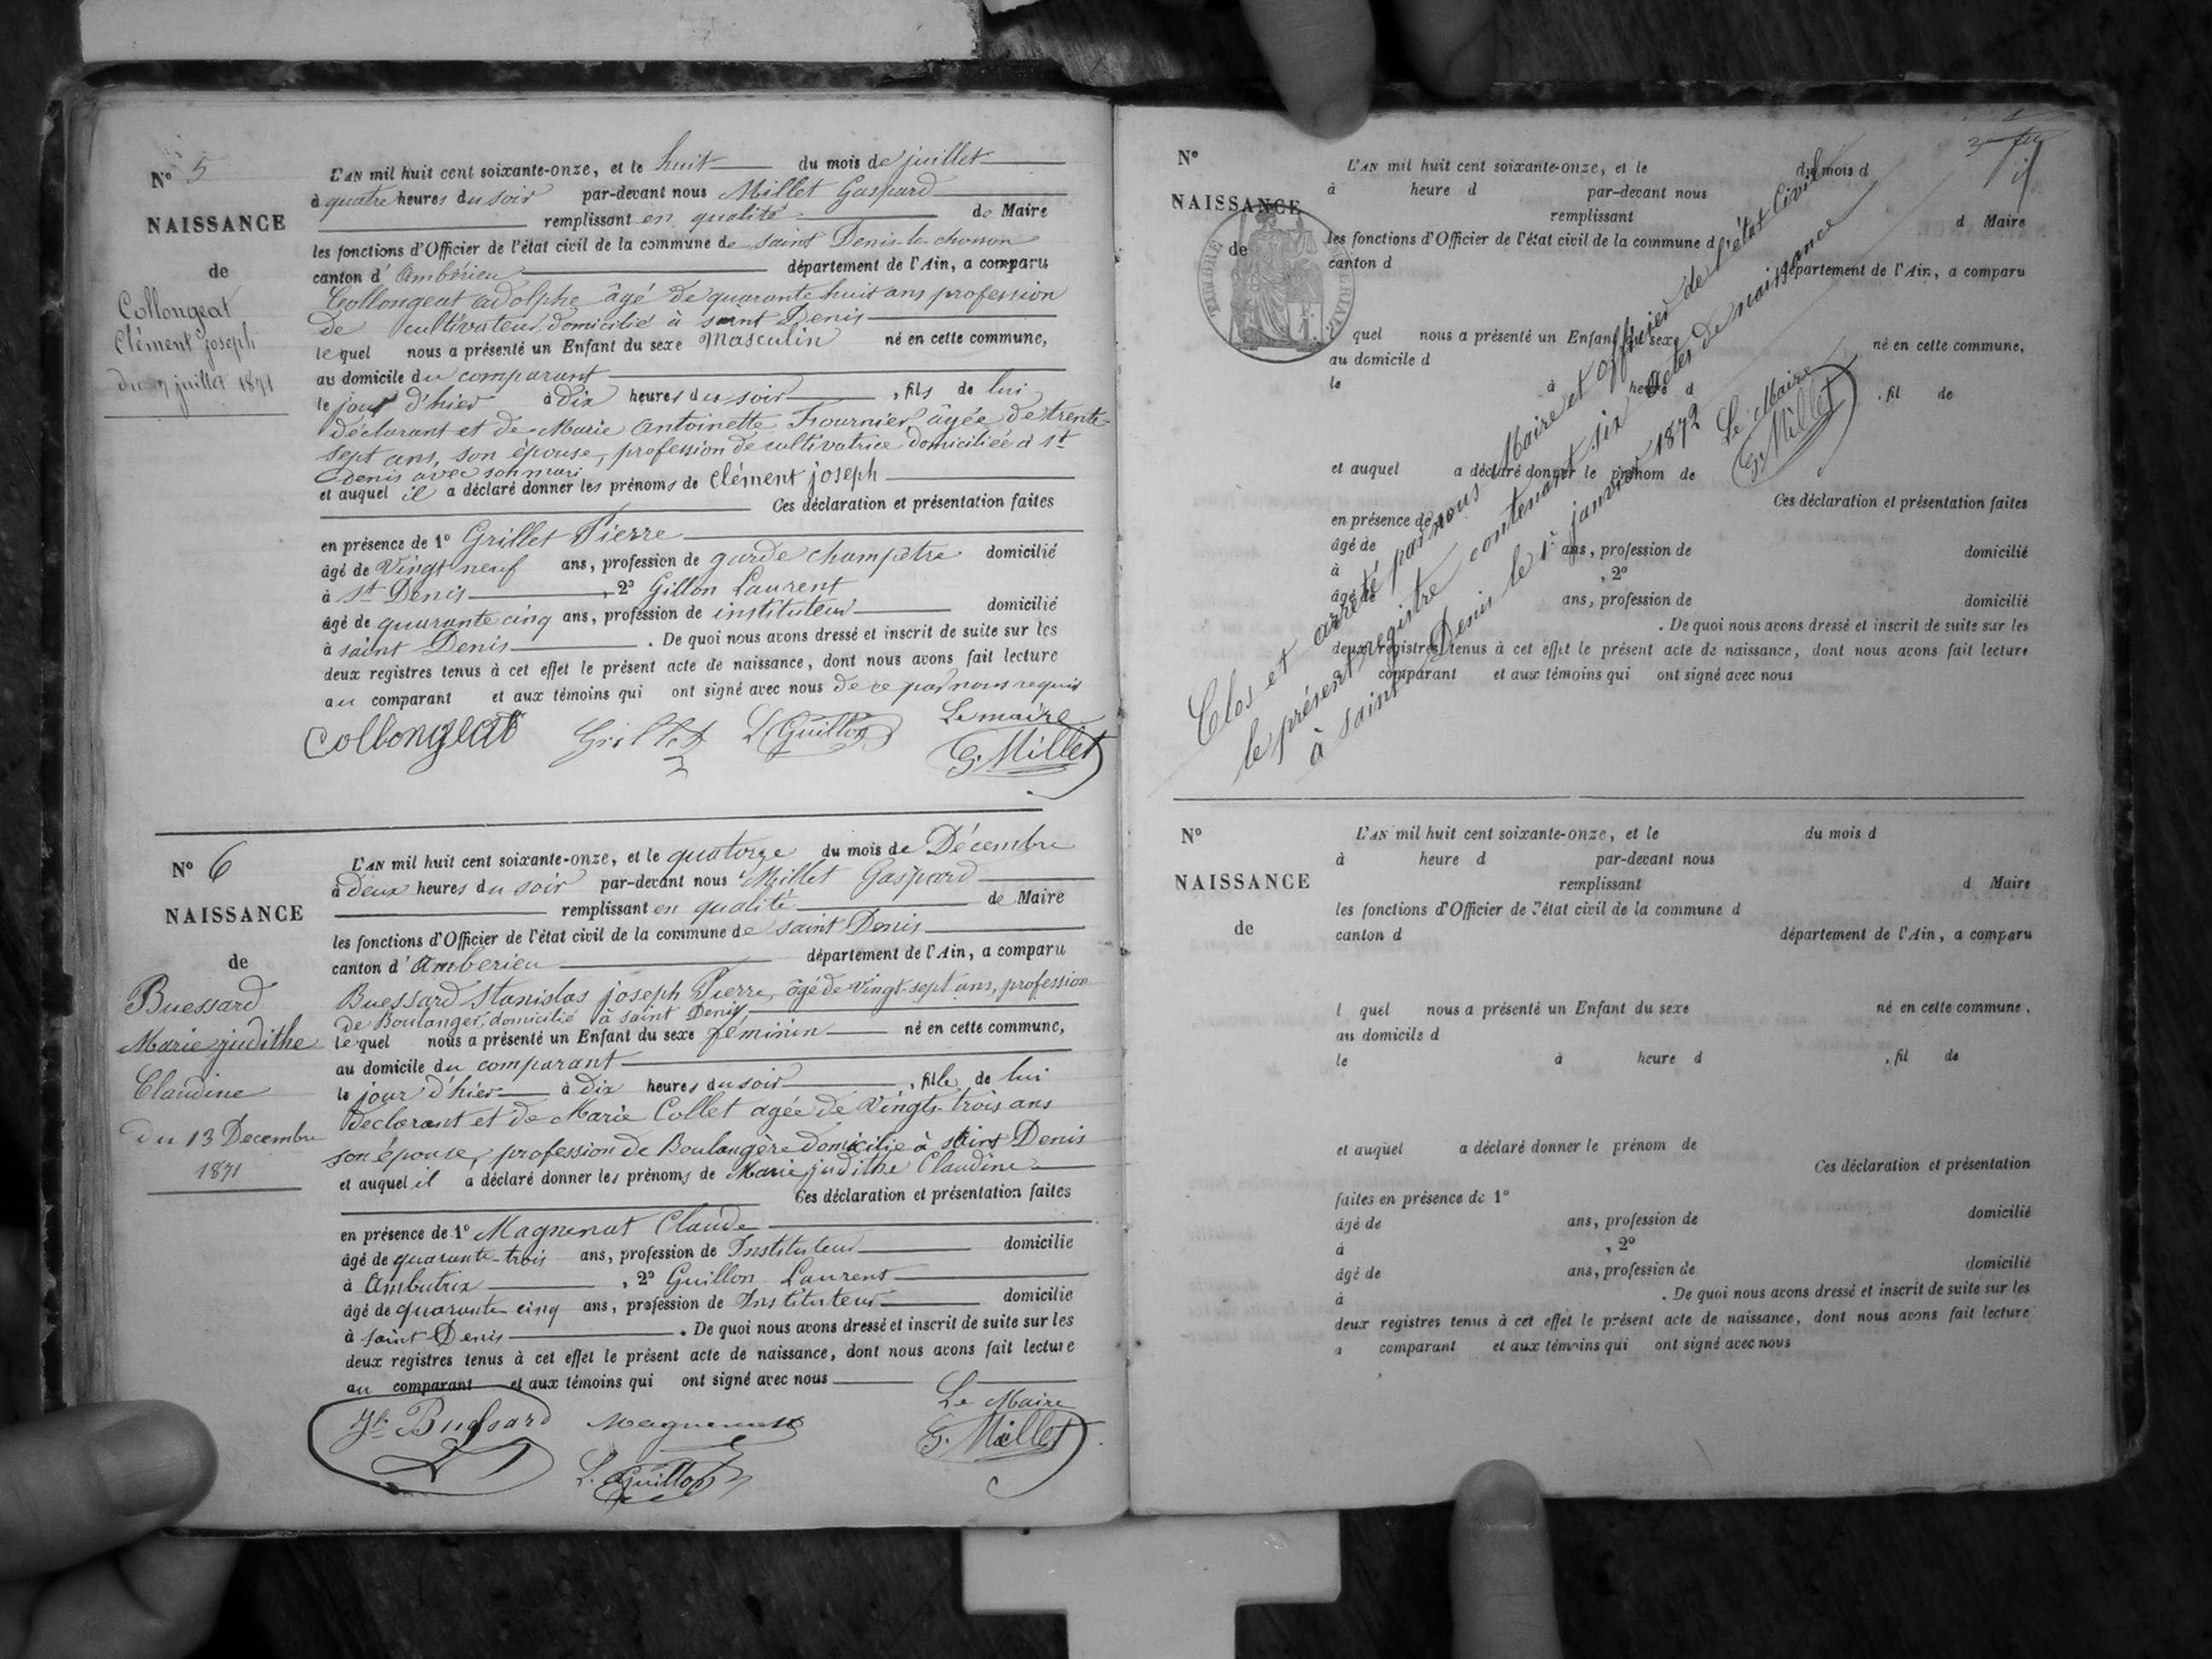 N° 5
NAISSANCE
de
Collongeat
Clément joseph
du 7 juillet 1871
L'AN mil huit cent soixante-onze, et le huit du mois de juillet
à quatre heures du soir par-devant nous Millet Gaspard
remplissant en qualité de Maire
les fonctions d'Officier de l'état civil de la commune de saint Denis-le-chosson
canton d'Ambérieu département de l'Ain, a comparu
Collongeat adolphe âgé de quarante huit ans profession
de cultivateur domicilié à saint Denis
le quel nous a présenté un Enfant du sexe Masculin né en cette commune,
au domicile du comparant
le jour d'hier à dix heures du soir, fils de lui
déclarant et de Marie Antoinette Fournier, âgée de trente-
sept ans, son épouse, profession de cultivatrice domiciliée à st
Denis avec son mari
et auquel il a déclaré donner les prénoms de Clément joseph
Ces déclaration et présentation faites
en présence de 1° Grillet Pierre
âgé de Vingt neuf ans, profession de garde champêtre domicilié
à St Denis, 2° Gillon Laurent
âgé de quarante cinq ans, profession de instituteur domicilié
à saint Denis. De quoi nous avons dressé et inscrit de suite sur les
deux registres tenus à cet effet le présent acte de naissance, dont nous avons fait lecture
au comparant et aux témoins qui ont signé avec nous de ce par nous requis
Collongeat Grillet L. Guillon Le maire
G. Millet
N° 6
NAISSANCE
de
Buessard
Marie judithe
Claudine
du 13 Decembre
1871
L'AN mil huit cent soixante-onze, et le quatorze du mois de Décembre
à deux heures du soir par-devant nous Millet Gaspard
remplissant en qualité de Maire
les fonctions d'Officier de l'état civil de la commune de saint Denis
canton d'Amberieu département de l'Ain, a comparu
Buessard Stanislas joseph Pierre, âgé de vingt-sept ans, profession
de Boulanger, domicilié à saint Denis,
le quel nous a présenté un Enfant du sexe féminin né en cette commune,
au domicile du comparant
le jour d'hier à dix heures du soir, fille de lui
declarant et de Marie Collet agée de Vingts-trois ans
son épouse, profession de Boulangère domicilie à saint Denis
et auquel il a déclaré donner les prénoms de Marie judithe Claudine
Ces déclaration et présentation faites
en présence de 1° Magnenat Claude
âgé de quarante-trois ans, profession de Instituteur domicilie
à Ambutrix, 2° Guillon Laurent
âgé de quarante cinq ans, profession de Instituteur domicilie
à saint Denis. De quoi nous avons dressé et inscrit de suite sur les
deux registres tenus à cet effet le présent acte de naissance, dont nous avons fait lecture
au comparant et aux témoins qui ont signé avec nous
Le Maire
Jh Buessard Magnenat G. Millet
L. Guillon
N°
NAISSANCE
de
TIMBRE
L'AN mil huit cent soixante-onze, et le du mois d
à heure d par-devant nous
remplissant d Maire
les fonctions d'Officier de l'état civil de la commune d
canton d département de l'Ain, a comparu
quel nous a présenté un Enfant du sexe né en cette commune,
au domicile d
le à heure d , fil de
et auquel a déclaré donner le prénom de
Ces déclaration et présentation faites
en présence de
âgé de ans, profession de domicilié
à , 2°
âgé de ans, profession de domicilié
. De quoi nous avons dressé et inscrit de suite sur les
deux registres tenus à cet effet le présent acte de naissance, dont nous avons fait lecture
comparant et aux témoins qui ont signé avec nous
Clos et arrêté par nous Maire et officier de l'état Civil
le présent registre contenant six actes de naissance
à saint Denis le 1r janvier 1872
Le Maire
G. Millet
N°
NAISSANCE
de
L'AN mil huit cent soixante-onze, et le du mois d
à heure d par-devant nous
remplissant d Maire
les fonctions d'Officier de l'état civil de la commune d
canton d département de l'Ain, a comparu
l quel nous a présenté un Enfant du sexe né en cette commune,
au domicile d
le à heure d , fil de
et auquel a déclaré donner le prénom de
Ces déclaration et présentation
faites en présence de 1°
âgé de ans, profession de domicilié
à , 2°
âgé de ans, profession de domicilié
à . De quoi nous avons dressé et inscrit de suite sur les
deux registres tenus à cet effet le présent acte de naissance, dont nous avons fait lecture
a comparant et aux témoins qui ont signé avec nous